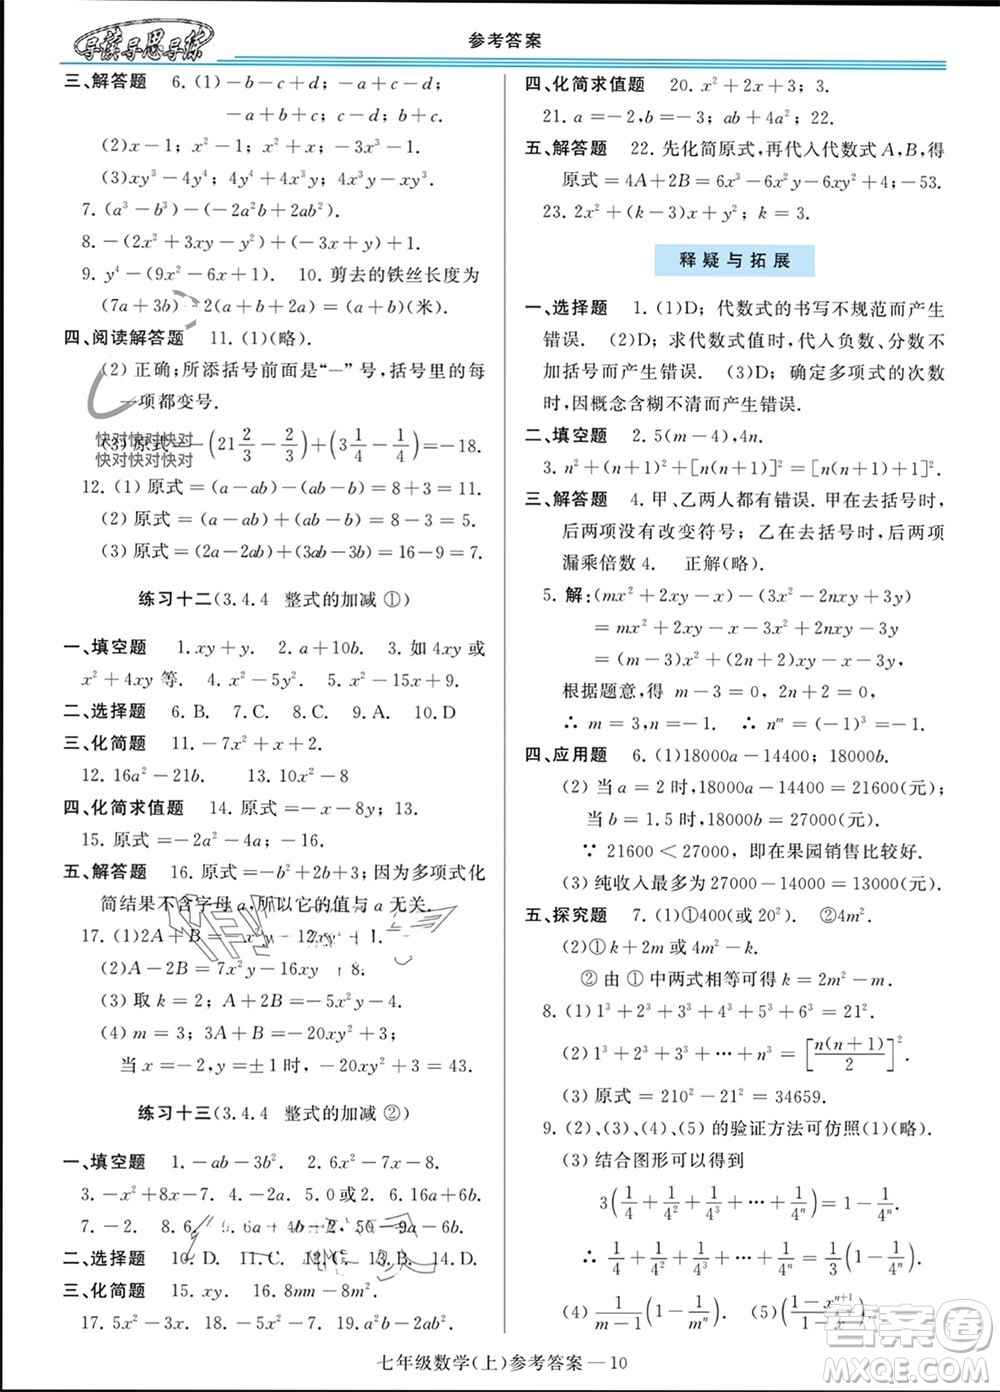 导读导思导练
参考答案
三、解答题 6. (1)-b-c+d; -a-c+d;
-a+b+c; -b+c-d.
(2)x-1; x²-1; x²+x-1.
(3)xy³-4y⁴; 4y⁴+4x³y;
4x³y-xy³.
7. (a³-b³)-(-2a²b+2ab²).
8. -(2x²+3xy-y²)+(-3x+y-1).
9. y⁴-(9x²-6x+1). 10. 剪去的铁丝长度为
(7a+3b)-2(a+b+2a)=(a+b)(米).
四、阅读解答题 11. (1)(略).
(2) 正确;所添括号前面是“-”号,括号里的每
一项都变号.
(3) 原式=-(21 2/3 - 2/3)+(3 1/4 - 1/4)=-18.
12. (1) 原式=(a-ab)-(b-ab)=8+3=11.
(2) 原式=(a-ab)+(b-ab)=8-3=5.
(3) 原式=(2a-2ab)+(3b-3ab)=16-9=7.
练习十二(3.4.4 整式的加减 ①)
一、填空题 1. xy+y. 2. a+10b. 3. 如 4xy 或
x²+4xy 等. 4. x²-5y². 5. x²-15x+9.
二、选择题 6. B. 7. C. 8. C. 9. A. 10. D
三、化简题 11. -7x²+x+2.
12. 16a²-21b. 13. 10x²-8
四、化简求值题 14. 原式=-x-8y; 13.
15. 原式=-2a²-4a; -16.
五、解答题 16. 原式=-b²+2b+3. 因为多项式化
简结果不含字母 a,所以它的值与 a 无关.
17. (1)2A+B=
(2)A-2B=7x²y-16xy
(3) 取 k=2; A+2B=-5x²y.
(4) m=3; 3A+B=-20xy²+3;
当 x=4, y=±1 时, -20xy²+3=-80.
练习十三(3.4.4 整式的加减 ②)
一、填空题 1. -ab-3b². 2. 6x²-7x-8.
3. -x²+8x-7. 4. -x-1. 5. 0或2. 6. -4.
7. -2. 8. 6.
二、选择题 10. D. 11. C. 12. B. 13. B. 14. D
三、化简题 15. xy. 16. 8mn-8m².
四、化简求值题 20. x²+2x+3; 3.
21. a=-2,b=-3; ab+4a²; 22.
五、解答题 22. 先化简原式,再代入代数式 A,B,得
原式=4A+2B=6x³-6x²y-6xy²+4; -53.
23. 2x²+(k-3)xy+y²; k=3.
释疑与拓展
一、选择题 1. (1)D; 代数式的书写不规范而产生
错误. (2)D; 求代数式值时,代入负数、分数不
加括号而产生错误. (3)D; 确定多项式的次数
时,因概念含糊不清而产生错误.
二、填空题 2. 5(m-4),4n.
3. n²+(n+1)²+[n(n+1)]²=[n(n+1)+1]².
三、解答题 4. 甲、乙两人都有错误. 甲在去括号时,
后两项没有改变符号; 乙在去括号时,后两项
漏乘倍数 4. 正解(略).
5. 解:(mx²+2xy-x)-(3x²-2nxy+3y)
=mx²+2xy-x-3x²+2nxy-3y
=(m-3)x²+(2n+2)xy-x-3y.
根据题意,得 m-3=0, 2n+2=0,
∴ m=3,n=-1. ∴ nᵐ=(-1)³=-1.
四、应用题 6. (1)18000a-14400; 18000b.
(2) 当 a=2 时,18000a-14400=21600(元);
当 b=1.5 时,18000b=27000(元).
∵ 21600<27000, 即在果园销售比较好.
(3) 纯收入最多为 27000-14000=13000(元).
五、探究题 7. (1)①400(或20²). ②4m².
(2)① k+2m 或 4m²-k.
② 由 ① 中两式相等可得 k=2m²-m.
8. (1) 1³+2³+3³+4³+5³+6³=21².
(2) 1³+2³+3³+⋯+n³=[n(n+1)/2]²
(3) 原式=210²-2·10³... =34659.
9. (2)、(3)、(4)、(5) 的验证方法可仿照(1)(略).
(3) 结合图形可以得到
∴
七年级数学(上)参考答案—10
快对快对快对
快对快对快对
答案圈
MXQE.COM